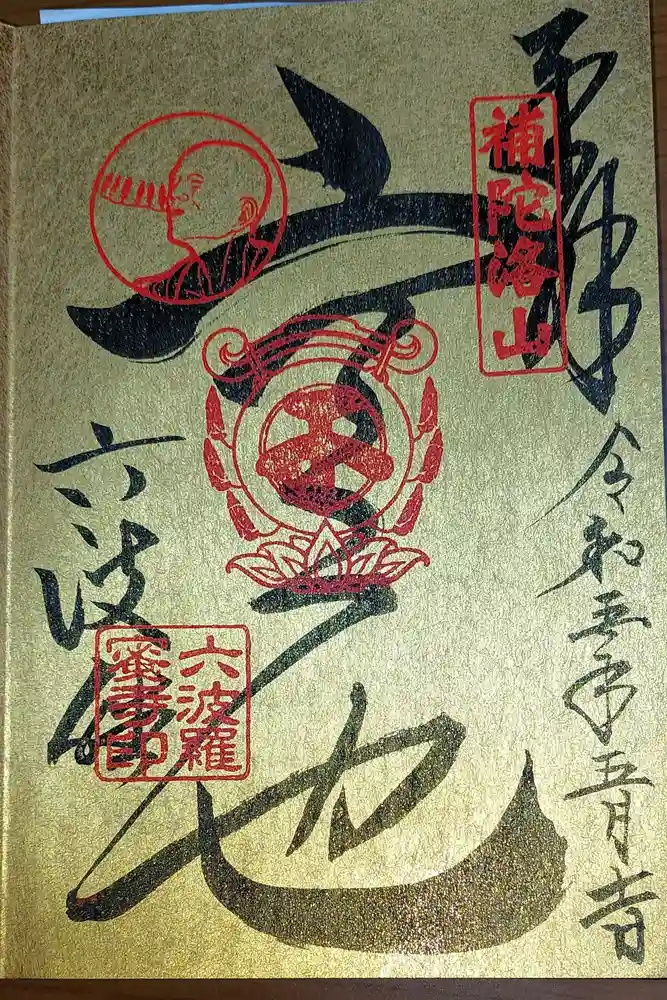 奉拝
補陀洛山
令和五年五月吉日
空也
六波
六波羅
蜜寺印